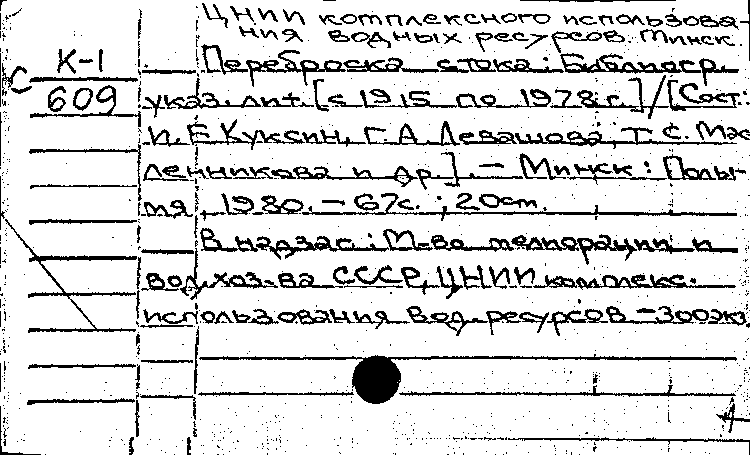 ЦНИИ комплексного использова-
ния водных ресурсов. Минск.
К-1
Переброска стока: Библиогр.
С
609
указ. лит. [с 1915 по 1978 г.] / [Сост.:
И. Е. Куксин, Г. А. Левашова, Т. С. Мас
ленникова и др.]. — Минск: Полы-
мя, 1980. — 67с.; 20см.
В надзаг: М-во мелиорации и
вод. хоз-ва СССР, ЦНИИ комплекс.
использования вод. ресурсов — 300экз.